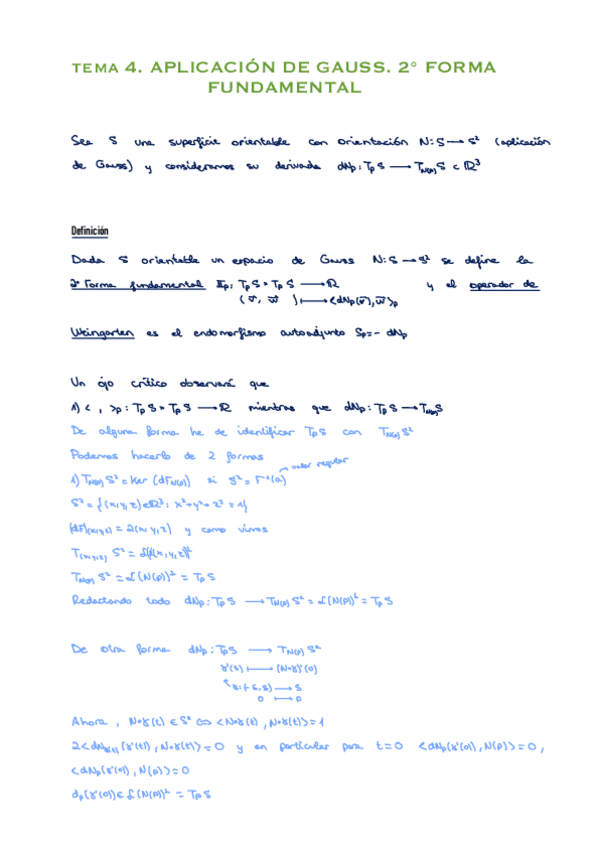 TEMA 4. APLICACIÓN DE GAUSS. 2° FORMA
FUNDAMENTAL
Sea S una superficie orientable con orientación N:S→S² (aplicación
de Gauss) y consideramos su derivada dNp:TpS→T_N(p)S ⊂ ℝ³
Definición
Dada S orientable un espacio de Gauss N:S→S² se define la
2ª Forma fundamental IIp: TpS × TpS → ℝ y el operador de
(v, w) ↦ <dNp(v), w>p
Weingarten es el endomorfismo autoadjunto Sp=-dNp
Un ojo crítico observará que
1) < , >p: TpS × TpS → ℝ mientras que dNp: TpS → T_N(p)S
De alguna forma he de identificar TpS con T_N(p)S²
Podemos hacerlo de 2 formas
valor regular
1) T_N(p)S² = Ker (dF_N(p)) si S² = F⁻¹(a)
S² = {(x,y,z)∈ℝ³: x²+y²+z² = 1}
(dF)(x,y,z) = 2(x,y,z) y como vimos
T(x,y,z) S² = L{(x,y,z)}⊥
T_N(p) S² = L(N(p))⊥ = TpS
Redactando todo dNp: TpS → T_N(p)S² = L(N(p))⊥ = TpS
De otra forma dNp: TpS → T_N(p)S²
γ'(0) ↦ (N∘γ)'(0)
γ:(-ε,ε) → S
0 ↦ 0
Ahora, N∘γ(t) ∈ S² ⇔ <N∘γ(t), N∘γ(t)> = 1
2<dN_γ(t)(γ'(t)), N∘γ(t)> = 0 y en particular para t=0 <dNp(γ'(0)), N(p)> = 0,
<dNp(γ'(0)), N(p)> = 0
dp(γ'(0)) ∈ L(N(p))⊥ = TpS